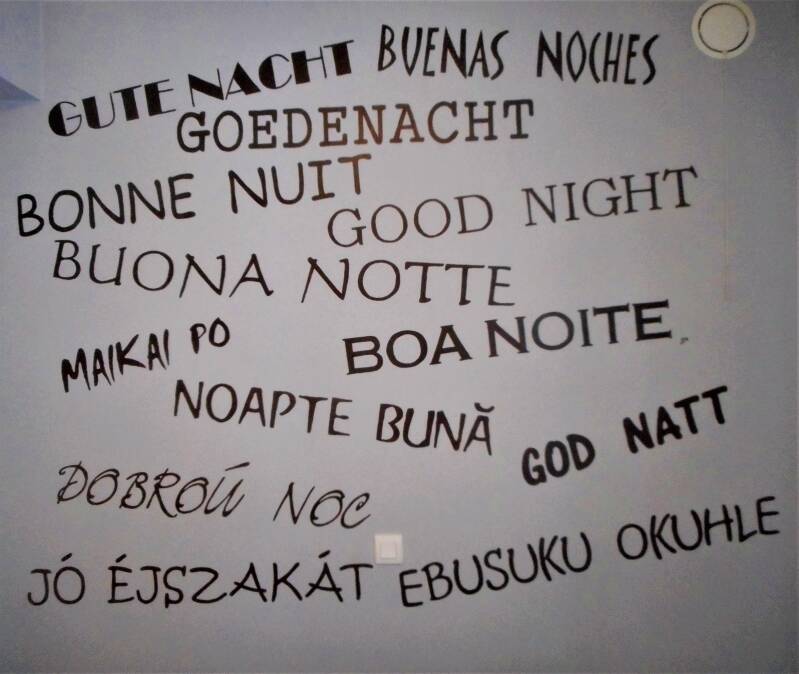 GUTE NACHT
BUENAS NOCHES
GOEDENACHT
BONNE NUIT
GOOD NIGHT
BUONA NOTTE
MAIKAI PO
BOA NOITE
NOAPTE BUNĂ
GOD NATT
DOBROÚ NOC
JÓ ÉJSZAKÁT
EBUSUKU OKUHLE